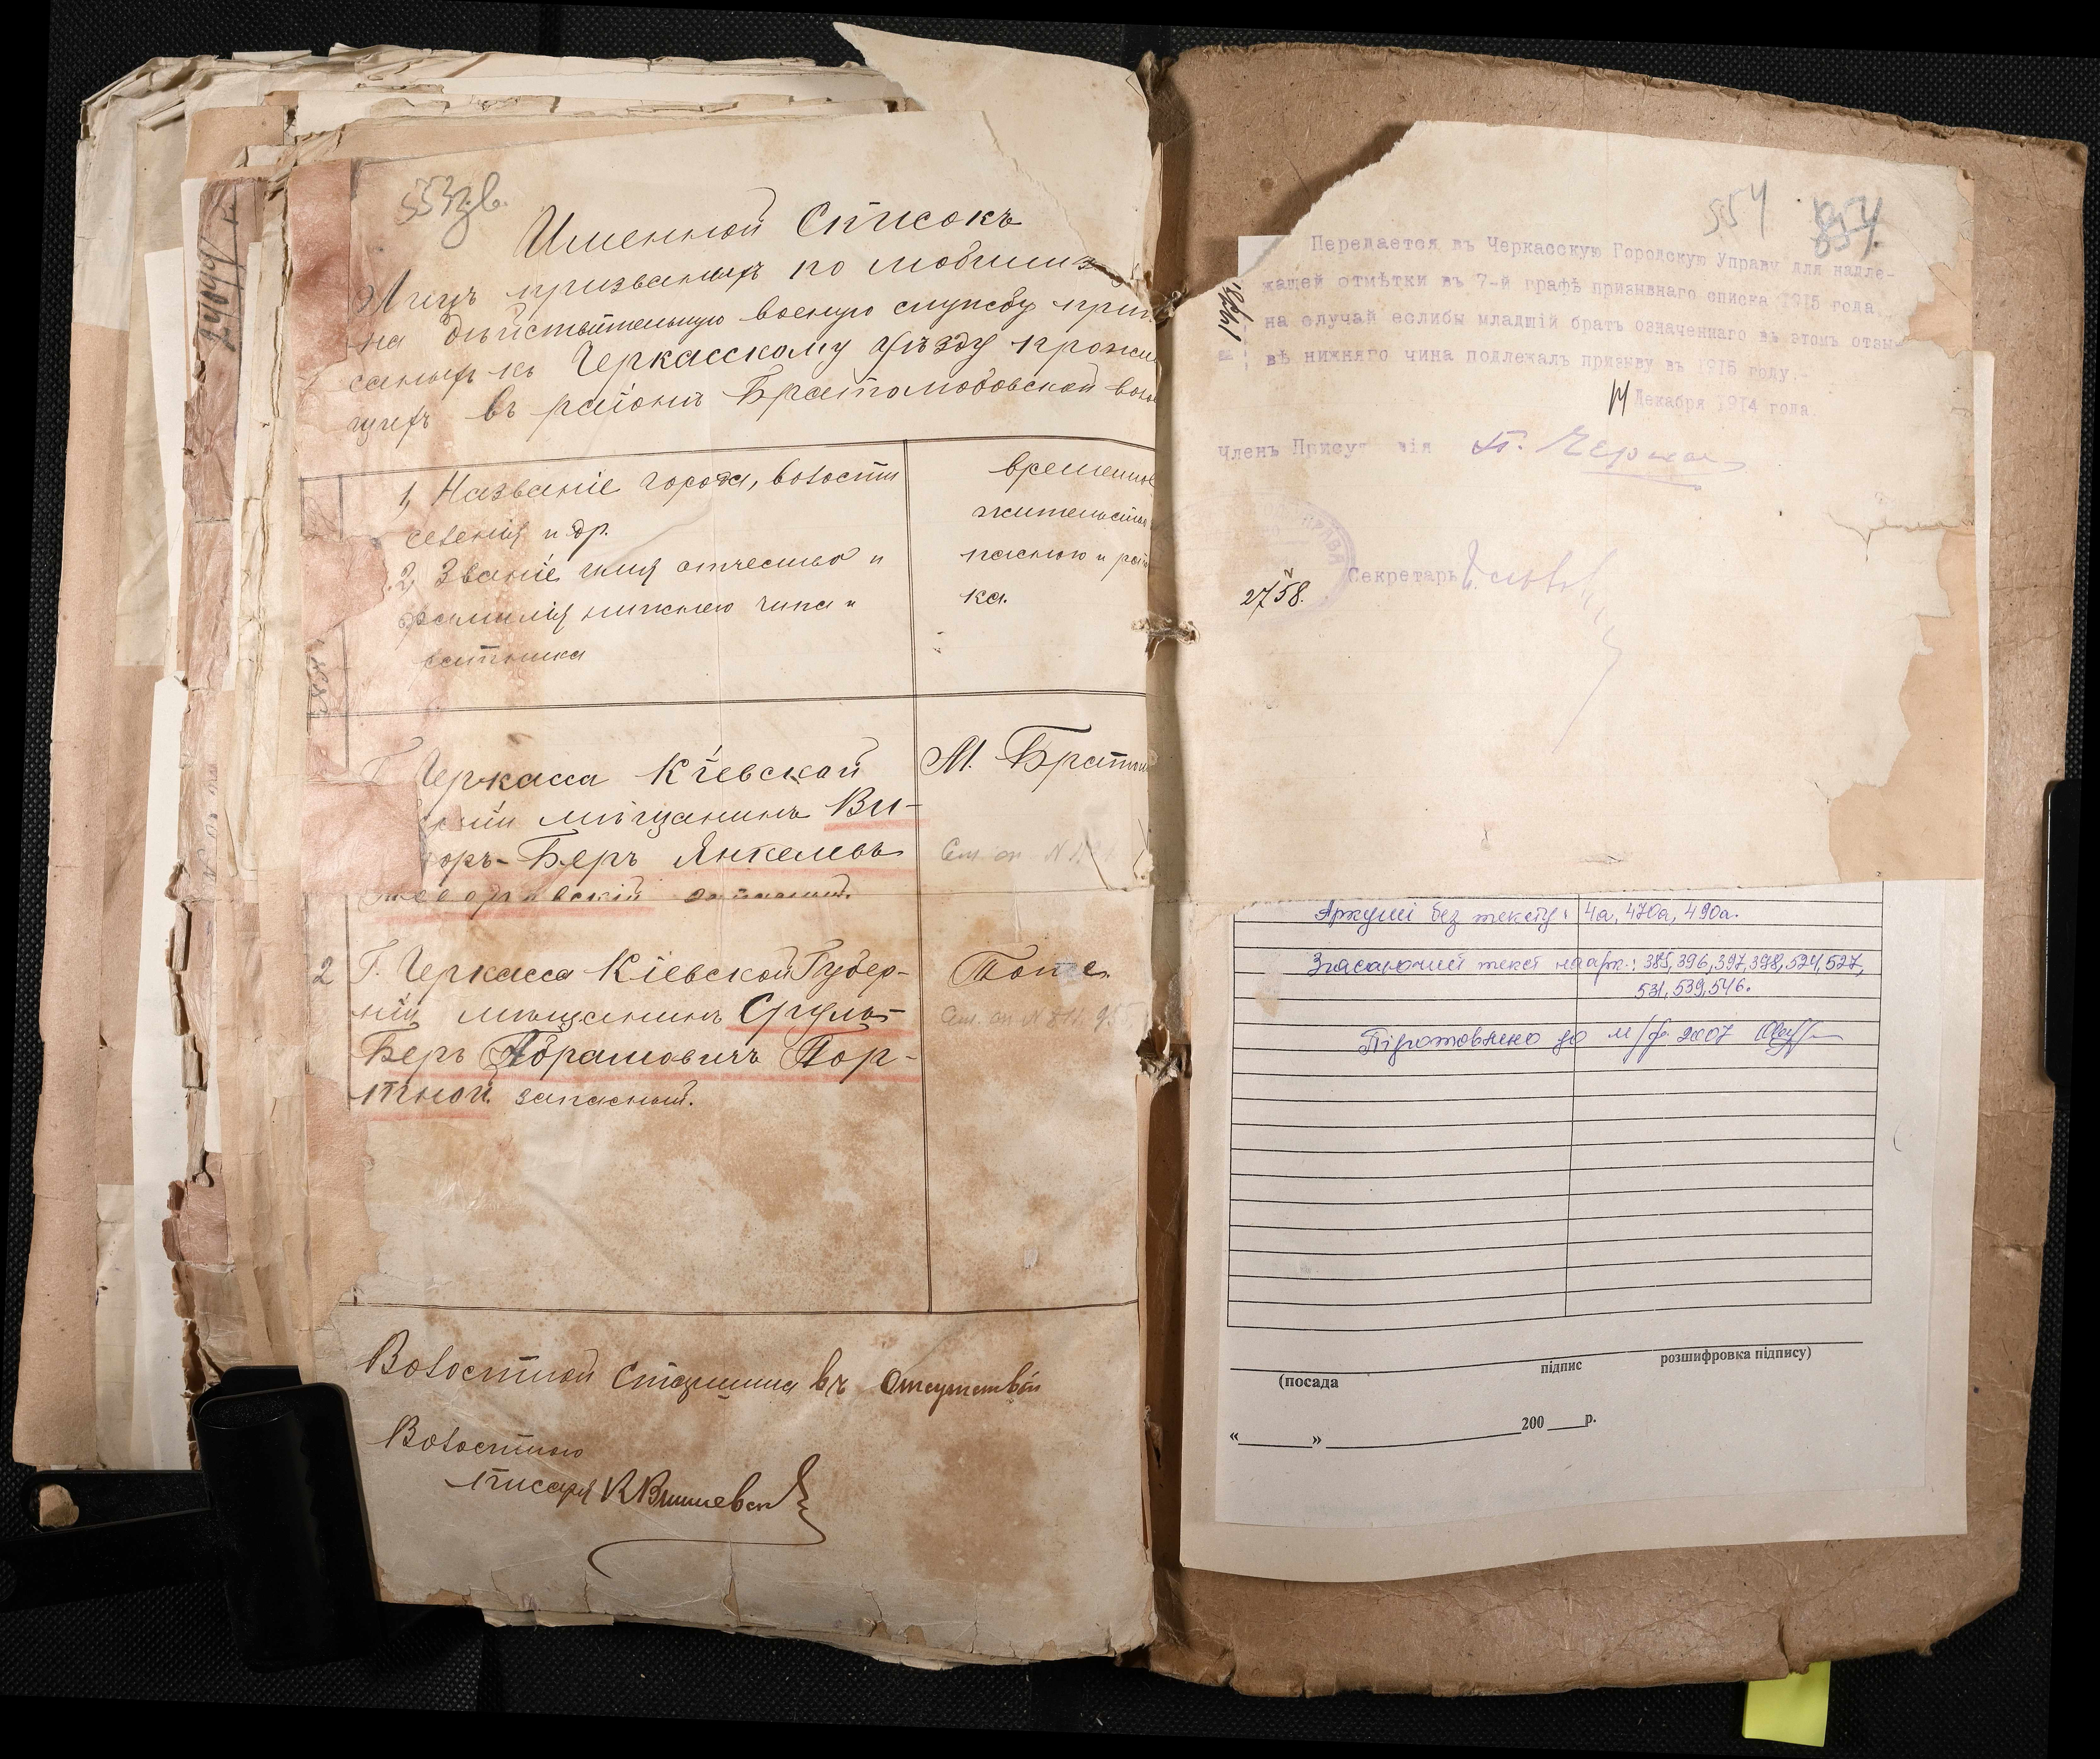 553зв.
Именной Списокъ
Лицъ призваныхъ по мобилиз
на дѣйствительную военную службу припи
саныхъ къ Черкасскому уѣзду прожи
щихъ въ раіонѣ Братолюбовской воло
1, Названіе города, волости
селенія и др.
2, Званіе имя отчество и
фамилія нижнего чина и
ратника
временное
жительство
пасного и рат
ка.
Г. Черкасса Кіевской
ніи мѣщанинъ Ви-
оръ-Беръ Янкелевъ
М. Братол
2
Г. Черкасса Кіевской Губер-
ніи мѣщанинъ Сруль-
Беръ Абрамовичъ Пор-
тной запасный.
Тоже
Волостной Старшина въ отсутствіи
Волостного
писаря К Вишневск
24044
554
Передается въ Черкасскую Городскую Управу для надле-
жащей отмѣтки въ 7-й графѣ призывнаго списка 1915 года
на случай еслибы младшій братъ означеннаго въ этомъ отзы-
вѣ нижняго чина подлежалъ призыву въ 1915 году.-
14 Декабря 1914 года.
Членъ Присут вія
Секретарь
2758.
Аркуші без тексту: 4а, 470а, 490а.
Згасаючий текст на арк.: 385, 396, 397, 398, 524, 527,
531, 539, 546.
Підготовлено до м/ф 2007
(посада
підпис
розшифровка підпису)
«______» ____________________200 ____р.